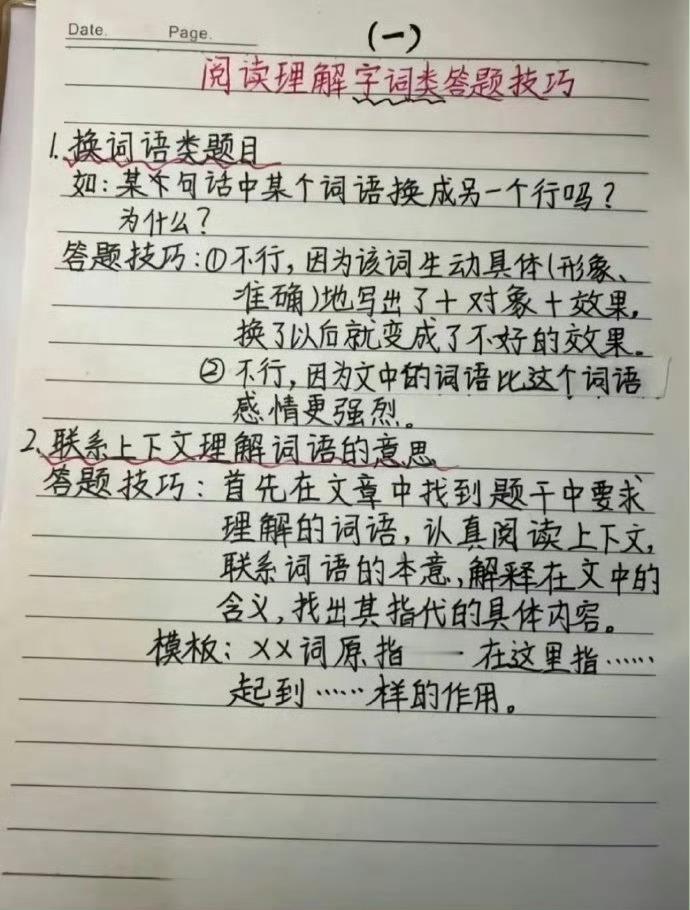 Date. Page.
(一)
阅读理解字词类答题技巧
1.换词语类题目
如:某个句话中某个词语换成另一个行吗?
为什么?
答题技巧:①不行,因为该词生动具体(形象、
准确)地写出了+对象+效果,
换了以后就变成了不好的效果。
②不行,因为文中的词语比这个词语
感情更强烈。
2、联系上下文理解词语的意思
答题技巧:首先在文章中找到题干中要求
理解的词语,认真阅读上下文,
联系词语的本意,解释在文中的
含义,找出其指代的具体内容。
模板:××词原指——在这里指……
起到……样的作用。